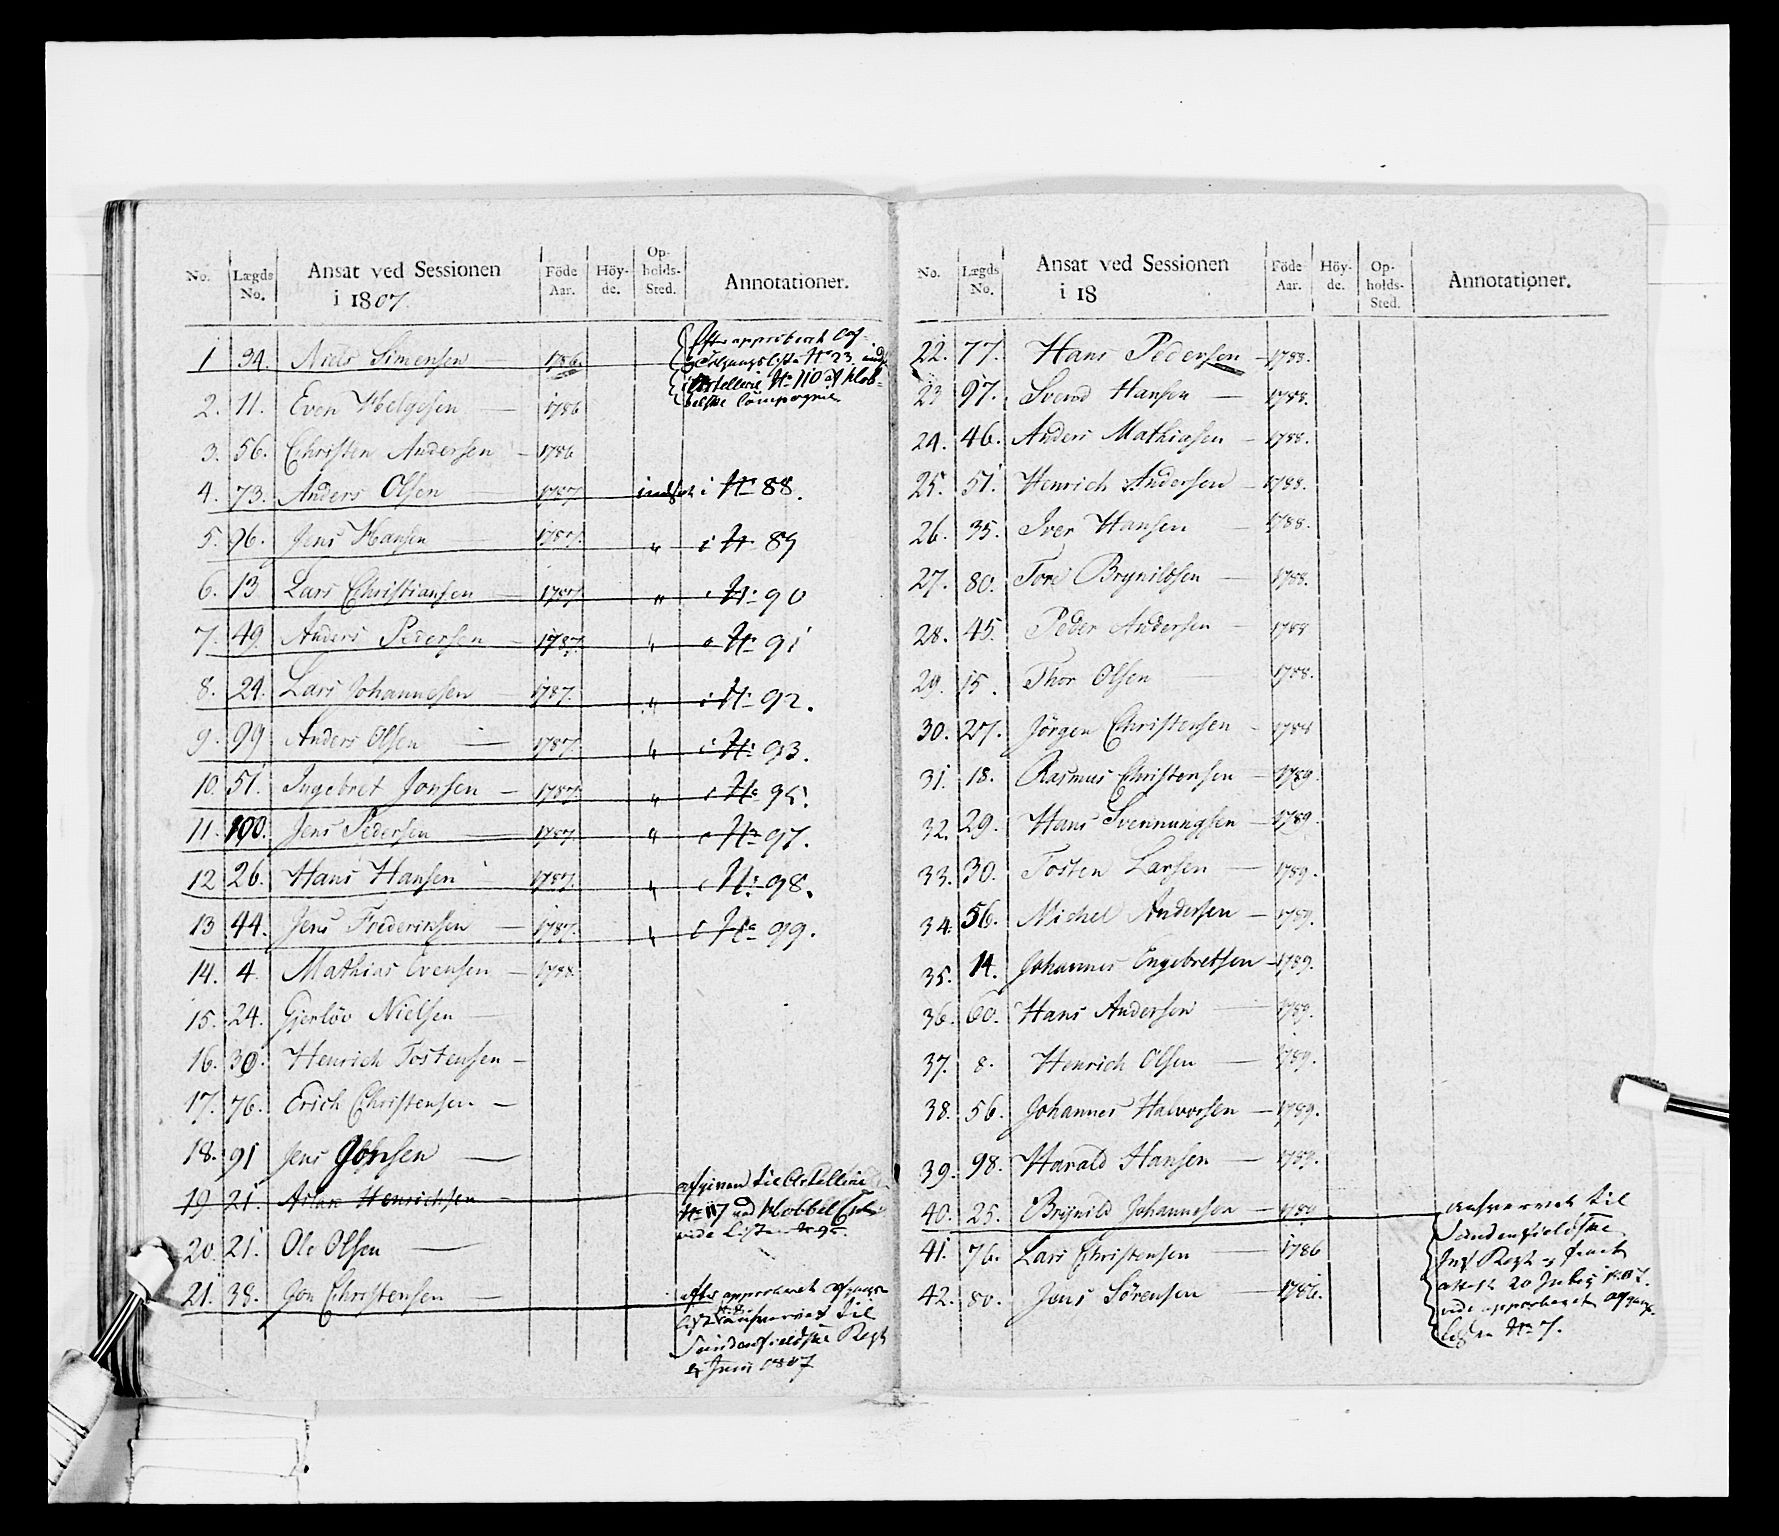 No. Lægds No. Ansat ved Sessionen i 1807. Föde Aar. Höy-de. Op-holds-Sted. Annotationer.
1 34. Niels Simensen 1786.
Efter approberet Af-
gangsliste No 23 inds
i Artellerie No 110 af Klob-
belske Compagnie
2. 11. Even Helgesen — 1786
3. 56. Christen Andersen — 1786
4. 73. Anders Olsen — 1787 indsat i No 88.
5. 96. Jens Hansen — 1787. " i No 89
6. 13 Lars Christiansen — 1787 " i No 90
7. 49. Anders Pedersen — 1787. " i No 91
8. 24. Lars Johannesen 1787. " i No 92.
9. 99 Anders Olsen — 1787. " i No 93.
10. 51. Ingebret Jonsen — 1787. " i No 95.
11. 100. Jens Pedersen — 1787. " i No 97.
12 26. Hans Hansen 1787. " i No 98.
13 44. Jens Frederiksen — 1787. " i No 99.
14. 4. Mathias Evensen — 1788.
15. 24. Gjerlöv Nielsen —
16. 30. Henrich Tostensen —
17. 76. Erich Christensen —
18. 91 Jens Johnsen —
19 21. Aslak Henrichsen —
afgiven til Artellerie
No 117 ved Klobbel
vide Liste No 9
20. 21. Ole Olsen —
21. 38. Jon Christensen —
efter approberet afgangs
List No 8 transverert til
Söndenfieldske Regt
Juni 1807
No. Lægds No. Ansat ved Sessionen i 18 Föde Aar. Höy-de. Op-holds-Sted. Annotationer.
22. 77. Hans Pedersen — 1788.
23 97. Svend Hansen — 1788.
24. 46. Anders Mathiasen — 1788.
25. 51. Henrich Andersen — 1788.
26. 35. Iver Hansen — 1788.
27. 80. Tore Brynilsen — 1788.
28. 45. Peder Andersen — 1788
29. 15. Thor Olsen — 1788.
30. 27. Jörgen Christensen — 1788
31. 18. Rasmus Christensen — 1789.
32. 29. Hans Svennungsen — 1789.
33. 30. Tosten Larsen — 1789.
34. 56. Michel Andersen — 1789.
35. 14. Johannes Engebretsen — 1789.
36. 60. Hans Andersen — 1789.
37. 8. Henrich Olsen — 1789.
38. 56. Johannes Halvorsen — 1789.
39. 98. Harald Hansen — 1789.
40. 25. Brynild Johannesen — 1789
transverert til
Söndenfieldske
Inf Regt
attest 20 July 1807.
vide approberet afgangs
No 7.
41. 76. Lars Christensen — 1786
42. 80. Jens Sörensen — 1786.